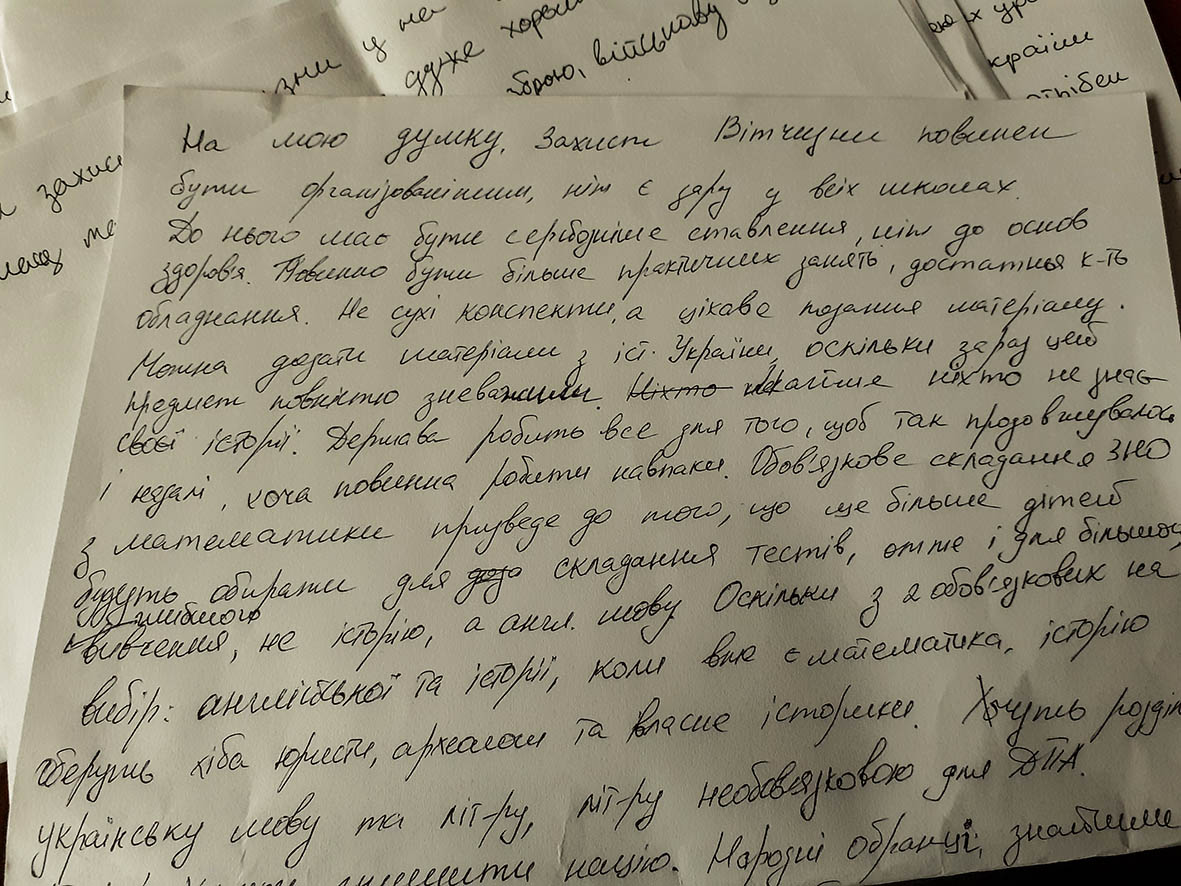 зни у на
дуже хорош
зброю, військову
ю х ур
країни
отрібен
захис
та
На мою думку, Захист Вітчизни повинен
бути організованішим, ніж є зару у всіх школах.
До нього має бути серйозніше ставлення, ніж до основ
здоров'я. Повинно бути більше практичних занять, достатня к-ть
обладнання. Не сухі конспекти, а цікаве подання матеріалу.
Можна додати матеріали з іст. України, оскільки зараз цей
предмет повністю зневажили. Ніхто майже ніхто не знає
своєї історії. Держава робить все для того, щоб так продовжувалось
і надалі, хоча повинна робити навпаки. Обов'язкове складання ЗНО
з математики призведе до того, що ще більше дітей
будуть обирати для складання тестів, отже і для більшого
глибшого
вивчення, не історію, а англ. мову Оскільки з 2 обов'язкових на
вибір: англійської та історії, коли вже є математика, історію
оберуть хіба юристи, археологи та власне історики. Хочуть розділ
українську мову та літ-ру, літ-ру необов'язковою для ДПА.
знищити націю. Народні обранці, знайшли